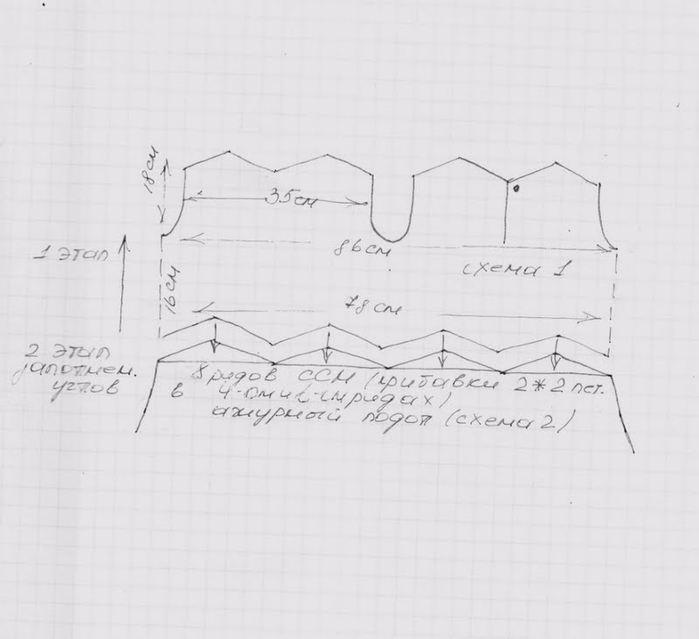 18см
35см
86см
1 этап
схема 1
16см
78см
2 этап
заполнен.
углов
8 рядов ССН (прибавки 2*2 пет.
в 4-ом и
ажурный подол (схема 2)